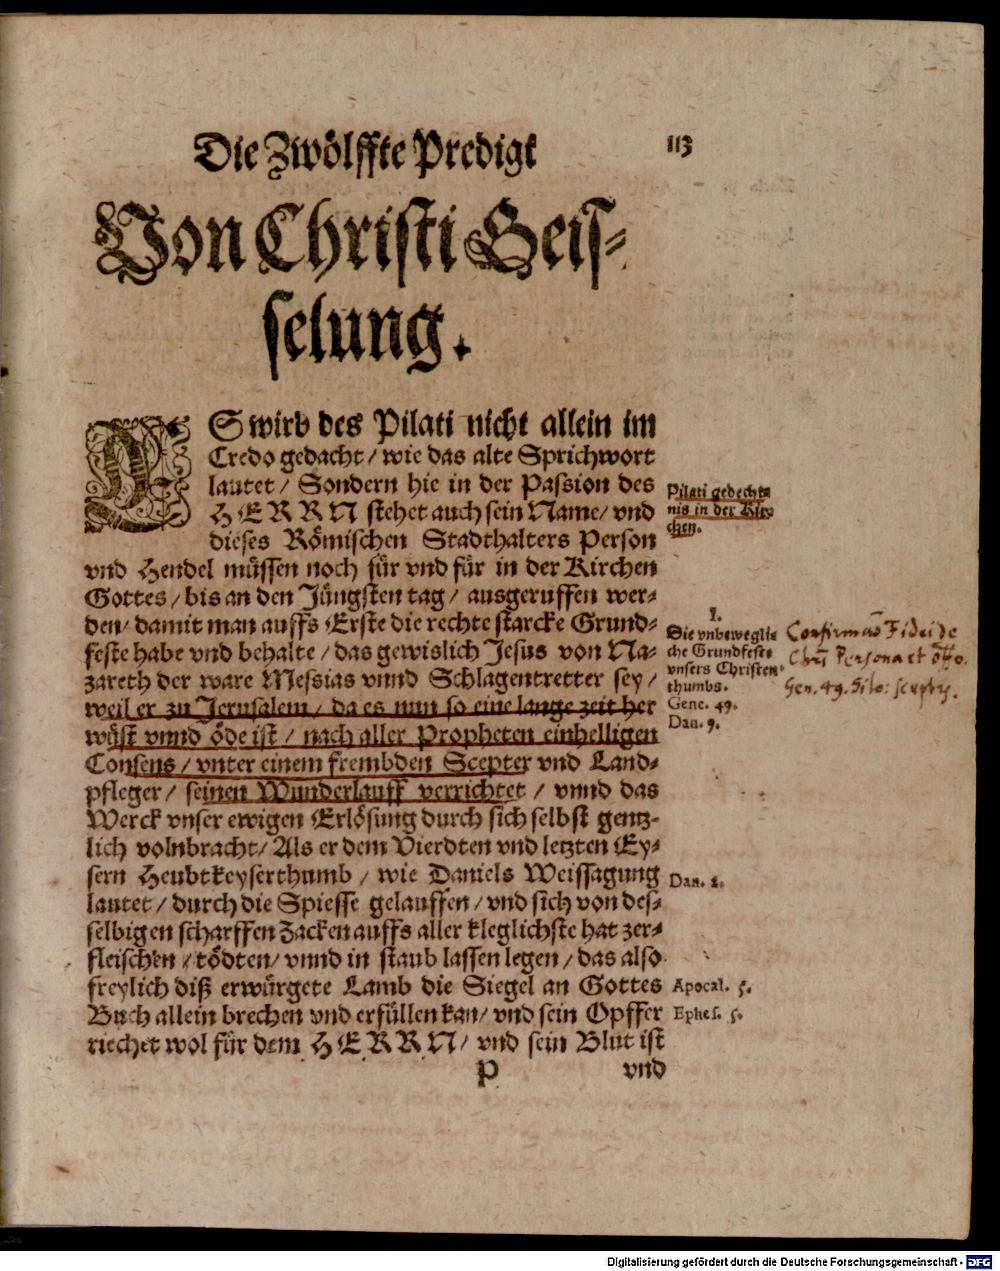 Die Zwölffte Predigt
113
Von Christi Geis-
selung.
ES wird des Pilati nicht allein im
Credo gedacht / wie das alte Sprichwort
lautet / Sondern hie in der Passion des
HERRN stehet auch sein Name / vnd
dieses Römischen Stadthalters Person
vnd Hendel müssen noch für vnd für in der Kirchen
Gottes / bis an den Jüngsten tag / ausgeruffen wer-
den / damit man auffs Erste die rechte starcke Grund-
feste habe vnd behalte / das gewislich Jesus von Na-
zareth der ware Messias vnnd Schlagentretter sey /
weil er zu Jerusalem / da es nun so eine lange zeit her
wüst vnnd öde ist / nach aller Propheten einhelligen
Consens / vnter einem frembden Scepter vnd Land-
pfleger / seinen Wunderlauff verrichtet / vnnd das
Werck vnser ewigen Erlösung durch sich selbst gentz-
lich volnbracht / Als er dem Vierdten vnd letzten Ey-
sern Heubtkeyserthumb / wie Daniels Weissagung
lautet / durch die Spiesse gelauffen / vnd sich von des-
selbigen scharffen Zacken auffs aller kleglichste hat zer-
fleischen / tödten / vnnd in staub lassen legen / das also
freylich diß erwürgete Lamb die Siegel an Gottes
Buch allein brechen vnd erfüllen kan / vnd sein Opffer
riechet wol für dem HERRN / vnd sein Blut ist
P
vnd
Pilati gedecht-
nis in der Kir-
chen.
1.
Die vnbewegli-
che Grundfeste
vnsers Christen-
thumbs.
Gene. 49.
Dan. 9.
Dan. 2.
Apocal. 5.
Ephes. 5.
Fidei de
Persona et
Gen. 49. Silo:
Digitalisierung gefördert durch die Deutsche Forschungsgemeinschaft - DFG